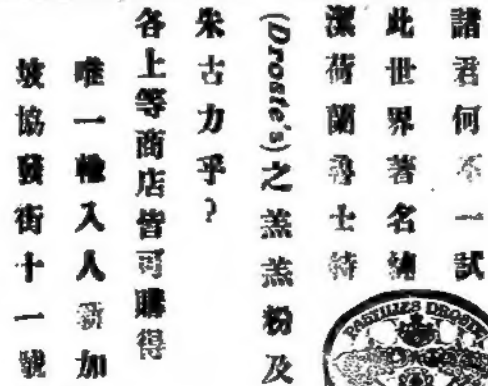 諸君何不一試
此世界著名純
潔荷蘭士特
(Droste's)之羔羔粉及
朱古力乎?
各上等商店皆可購得
唯一輸入人新加
坡協發街十一號
PASTILLES DROSTE